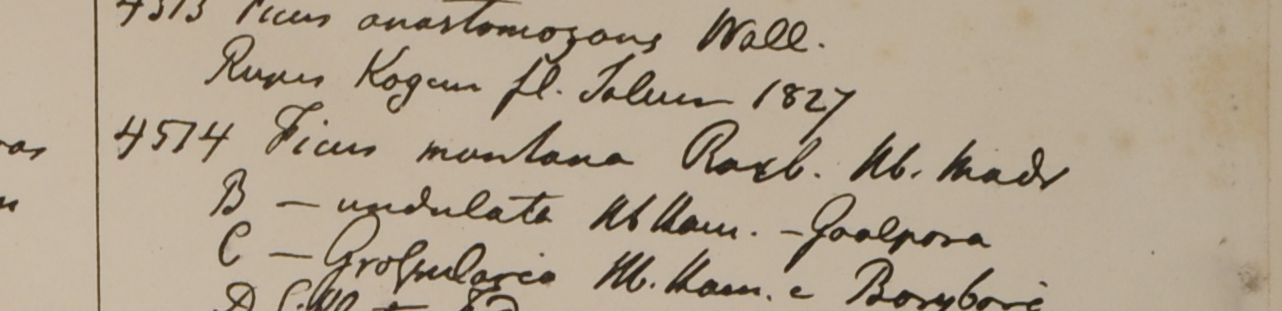 4513 Ficus anastomozans Wall.
Rupes Kogun fl. Saluen 1827
as 4514 Ficus montana Roxb. Hb. Madr
B — undulata Hb Ham. - Goalpora
C — Grossularia Hb. Ham. e
D